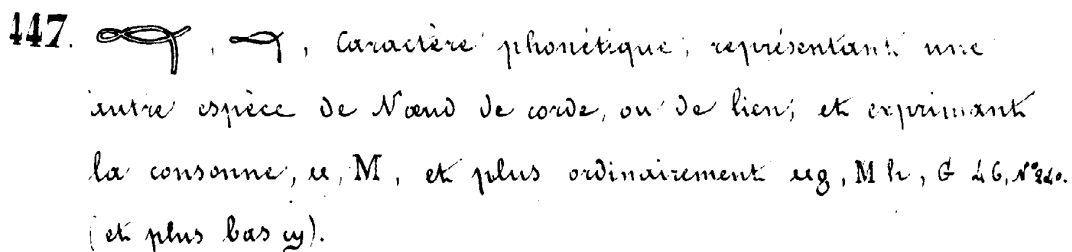 447. , , Caractère phonétique, représentant une
autre espèce de Nœud de corde, ou de lien; et exprimant
la consonne, ⲙ, M, et plus ordinairement ⲙϩ, M h, G 46, N°240.
(et plus bas ϣ).